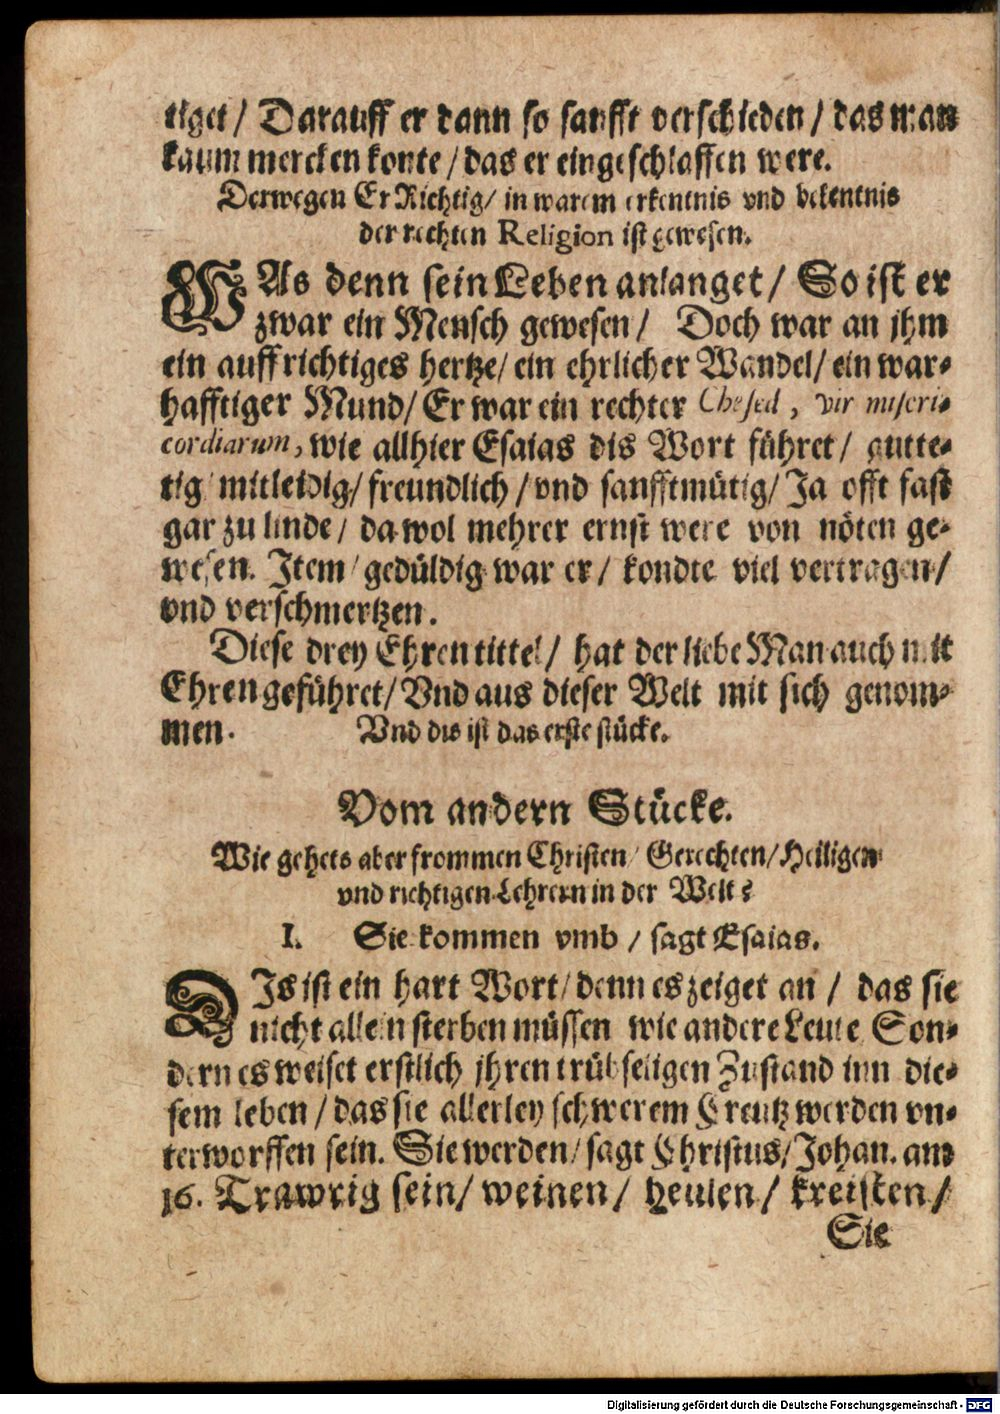 tiget / Darauff er dann so sanfft verschieden / das man
kaum mercken konte / das er eingeschlaffen were.
Derwegen Er Richtig / in warem erkentnis vnd bekentnis
der rechten Religion ist gewesen.
WAs denn sein Leben anlanget / So ist er
zwar ein Mensch gewesen / Doch war an jhm
ein auffrichtiges hertze / ein ehrlicher Wandel / ein war-
hafftiger Mund / Er war ein rechter Chesed, vir miseri-
cordiarum, wie allhier Esaias dis Wort führet / gutte-
tig / mitleidig / freundlich / vnd sanfftmütig / Ja offt fast
gar zu linde / da wol mehrer ernst were von nöten ge-
wesen. Item / gedüldig war er / kondte viel vertragen /
vnd verschmertzen.
Diese drey Ehrentittel / hat der liebe Man auch mit
Ehren geführet / Vnd aus dieser Welt mit sich genom-
men. Vnd dis ist das erste stücke.
Vom andern Stücke.
Wie gehets aber frommen Christen / Gerechten / Heiligen
vnd richtigen Lehrern in der Welt?
I. Sie kommen vmb / sagt Esaias.
DIs ist ein hart Wort / denn es zeiget an / das sie
nicht allein sterben müssen wie andere Leute Son-
dern es weiset erstlich jhren trübseligen Zustand inn die-
sem leben / das sie allerley schwerem Creutz werden vn-
terworffen sein. Sie werden / sagt Christus / Johan. am
16. Trawrig sein / weinen / heulen / kreisten /
Sie
Digitalisierung gefördert durch die Deutsche Forschungsgemeinschaft - DFG